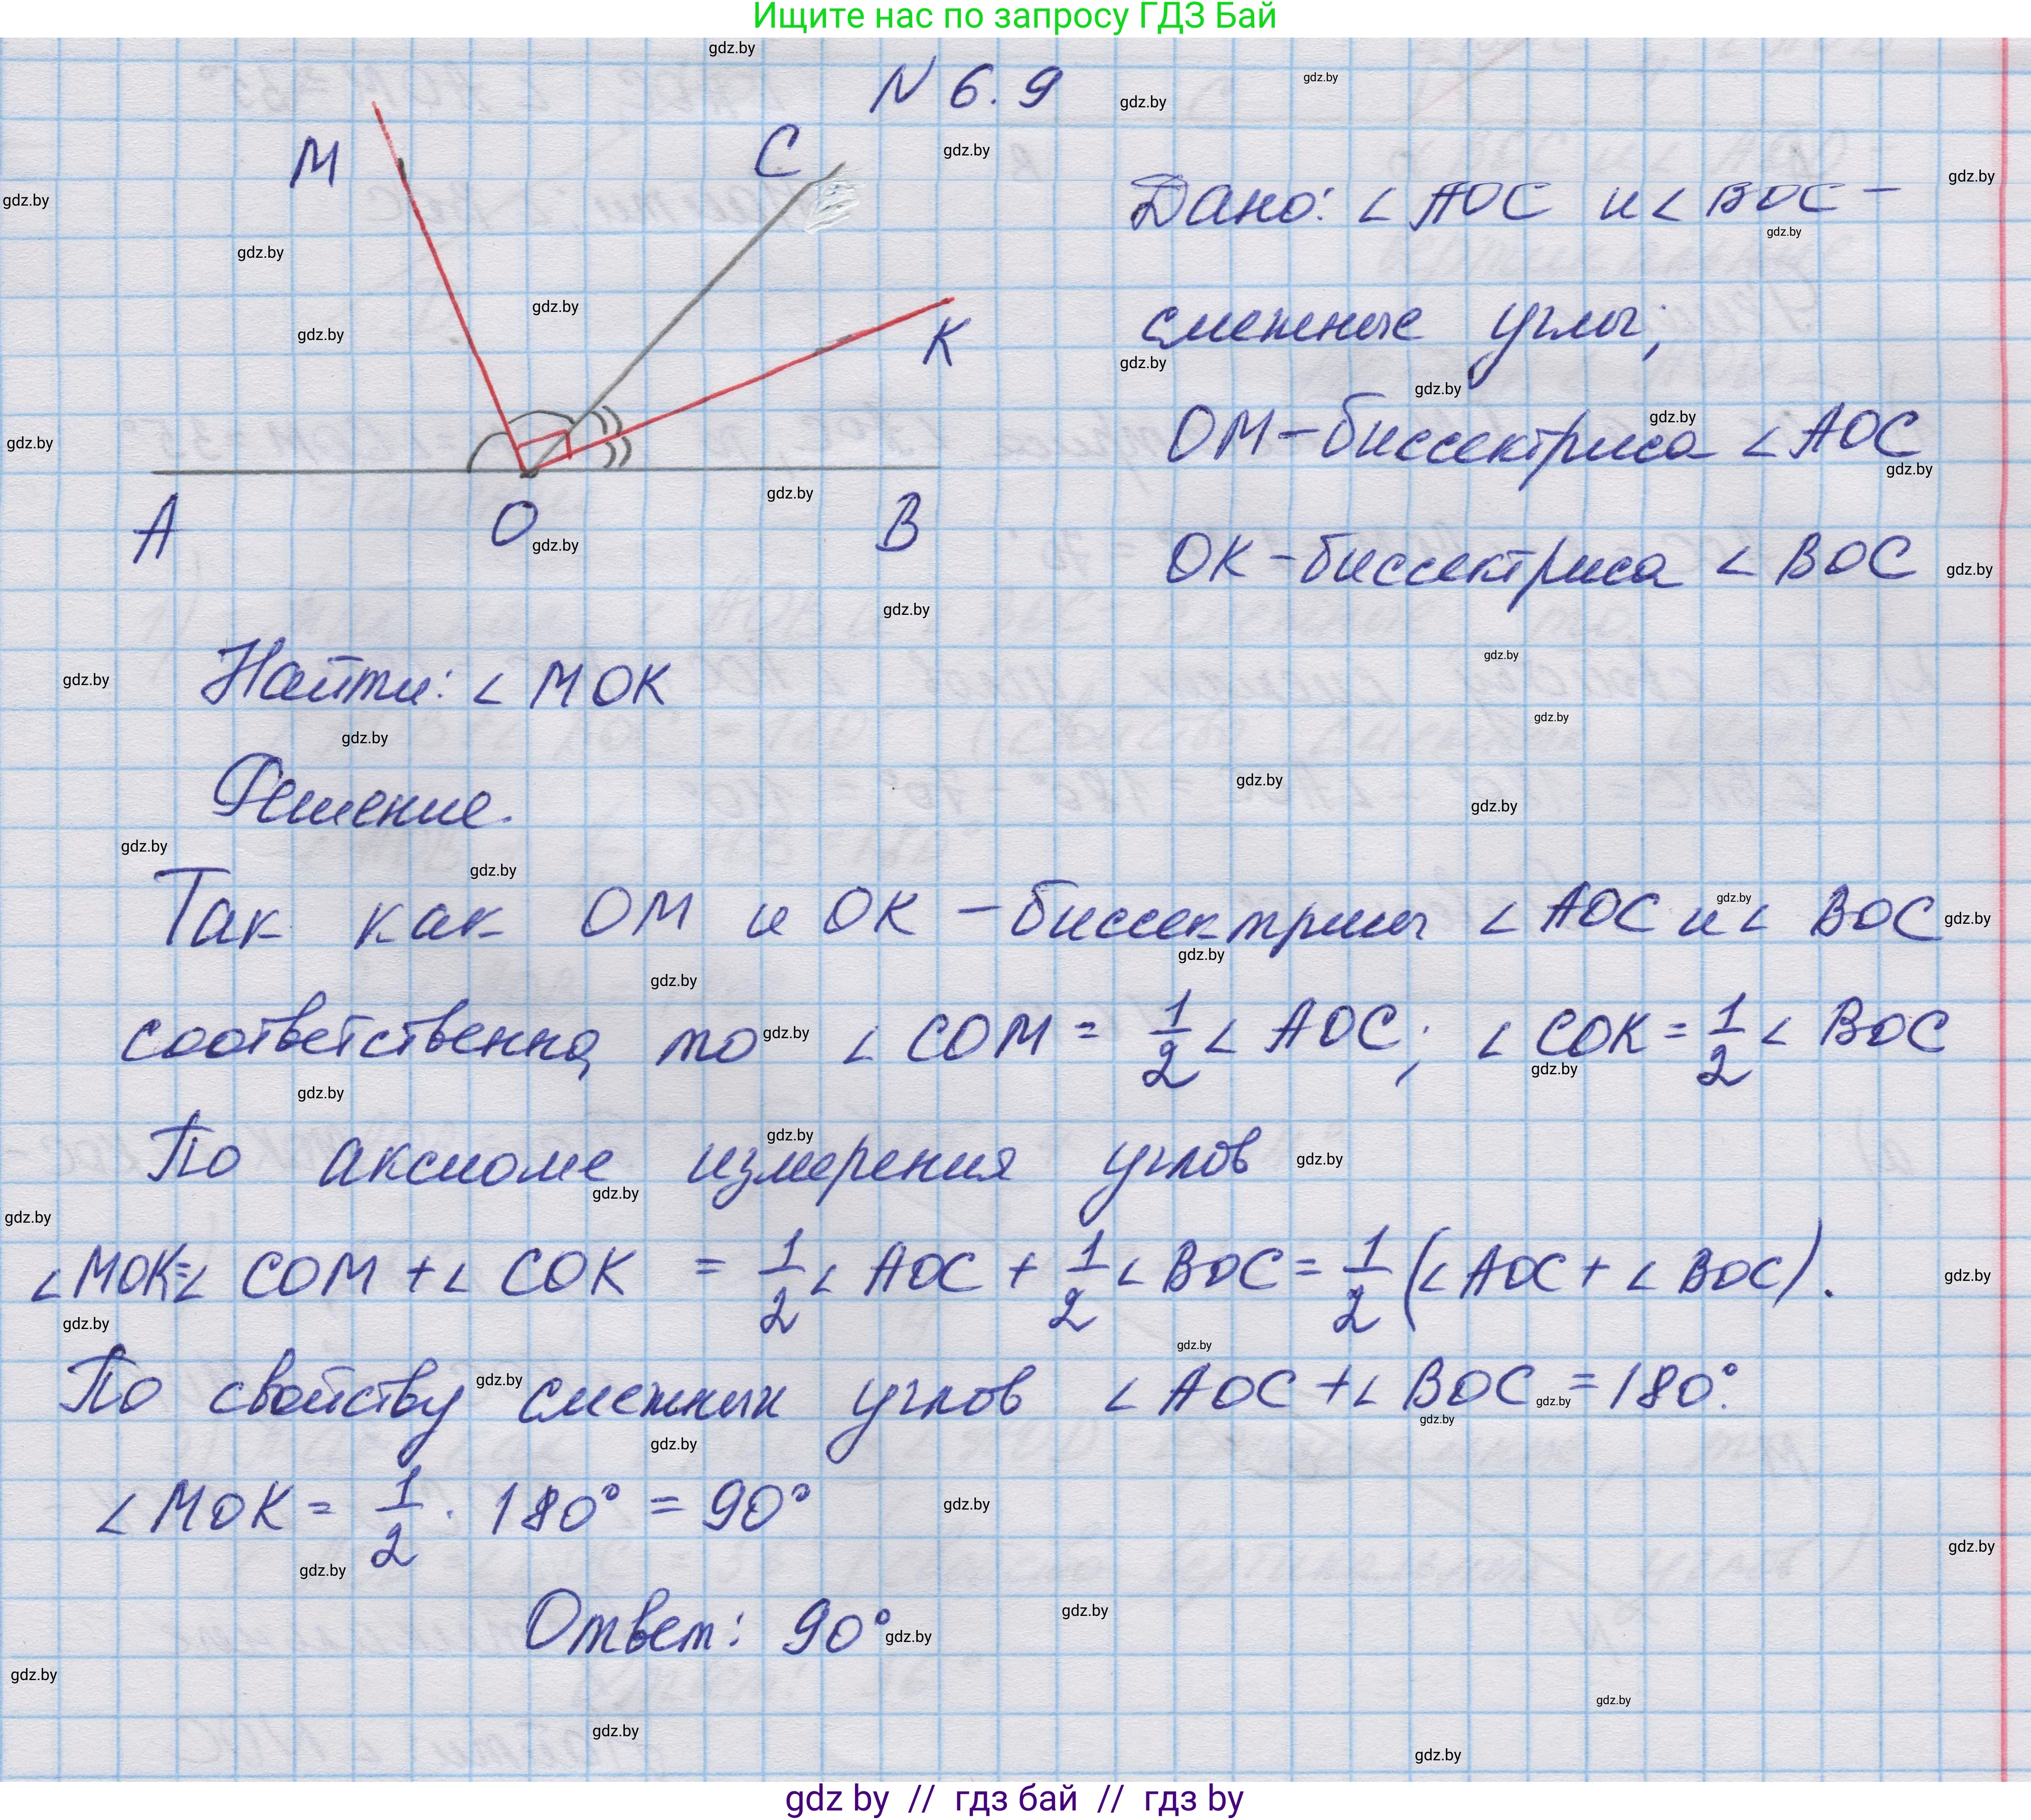 Ищите нас по запросу ГДЗ Бай
N 6.9
M
C
K
A
O
B
Дано: ∠ AOC и ∠ BOC –
смежные углы;
OM – биссектриса ∠ AOC
OK – биссектриса ∠ BOC
Найти: ∠ MOK
Решение.
Так как OM и OK – биссектрисы ∠ AOC и ∠ BOC
соответственно, то ∠ COM = 1/2 ∠ AOC; ∠ COK = 1/2 ∠ BOC
По аксиоме измерения углов
∠ MOK = ∠ COM + ∠ COK = 1/2 ∠ AOC + 1/2 ∠ BOC = 1/2 (∠ AOC + ∠ BOC).
По свойству смежных углов ∠ AOC + ∠ BOC = 180°.
∠ MOK = 1/2 · 180° = 90°
Ответ: 90°
gdz by // гдз бай // гдз by